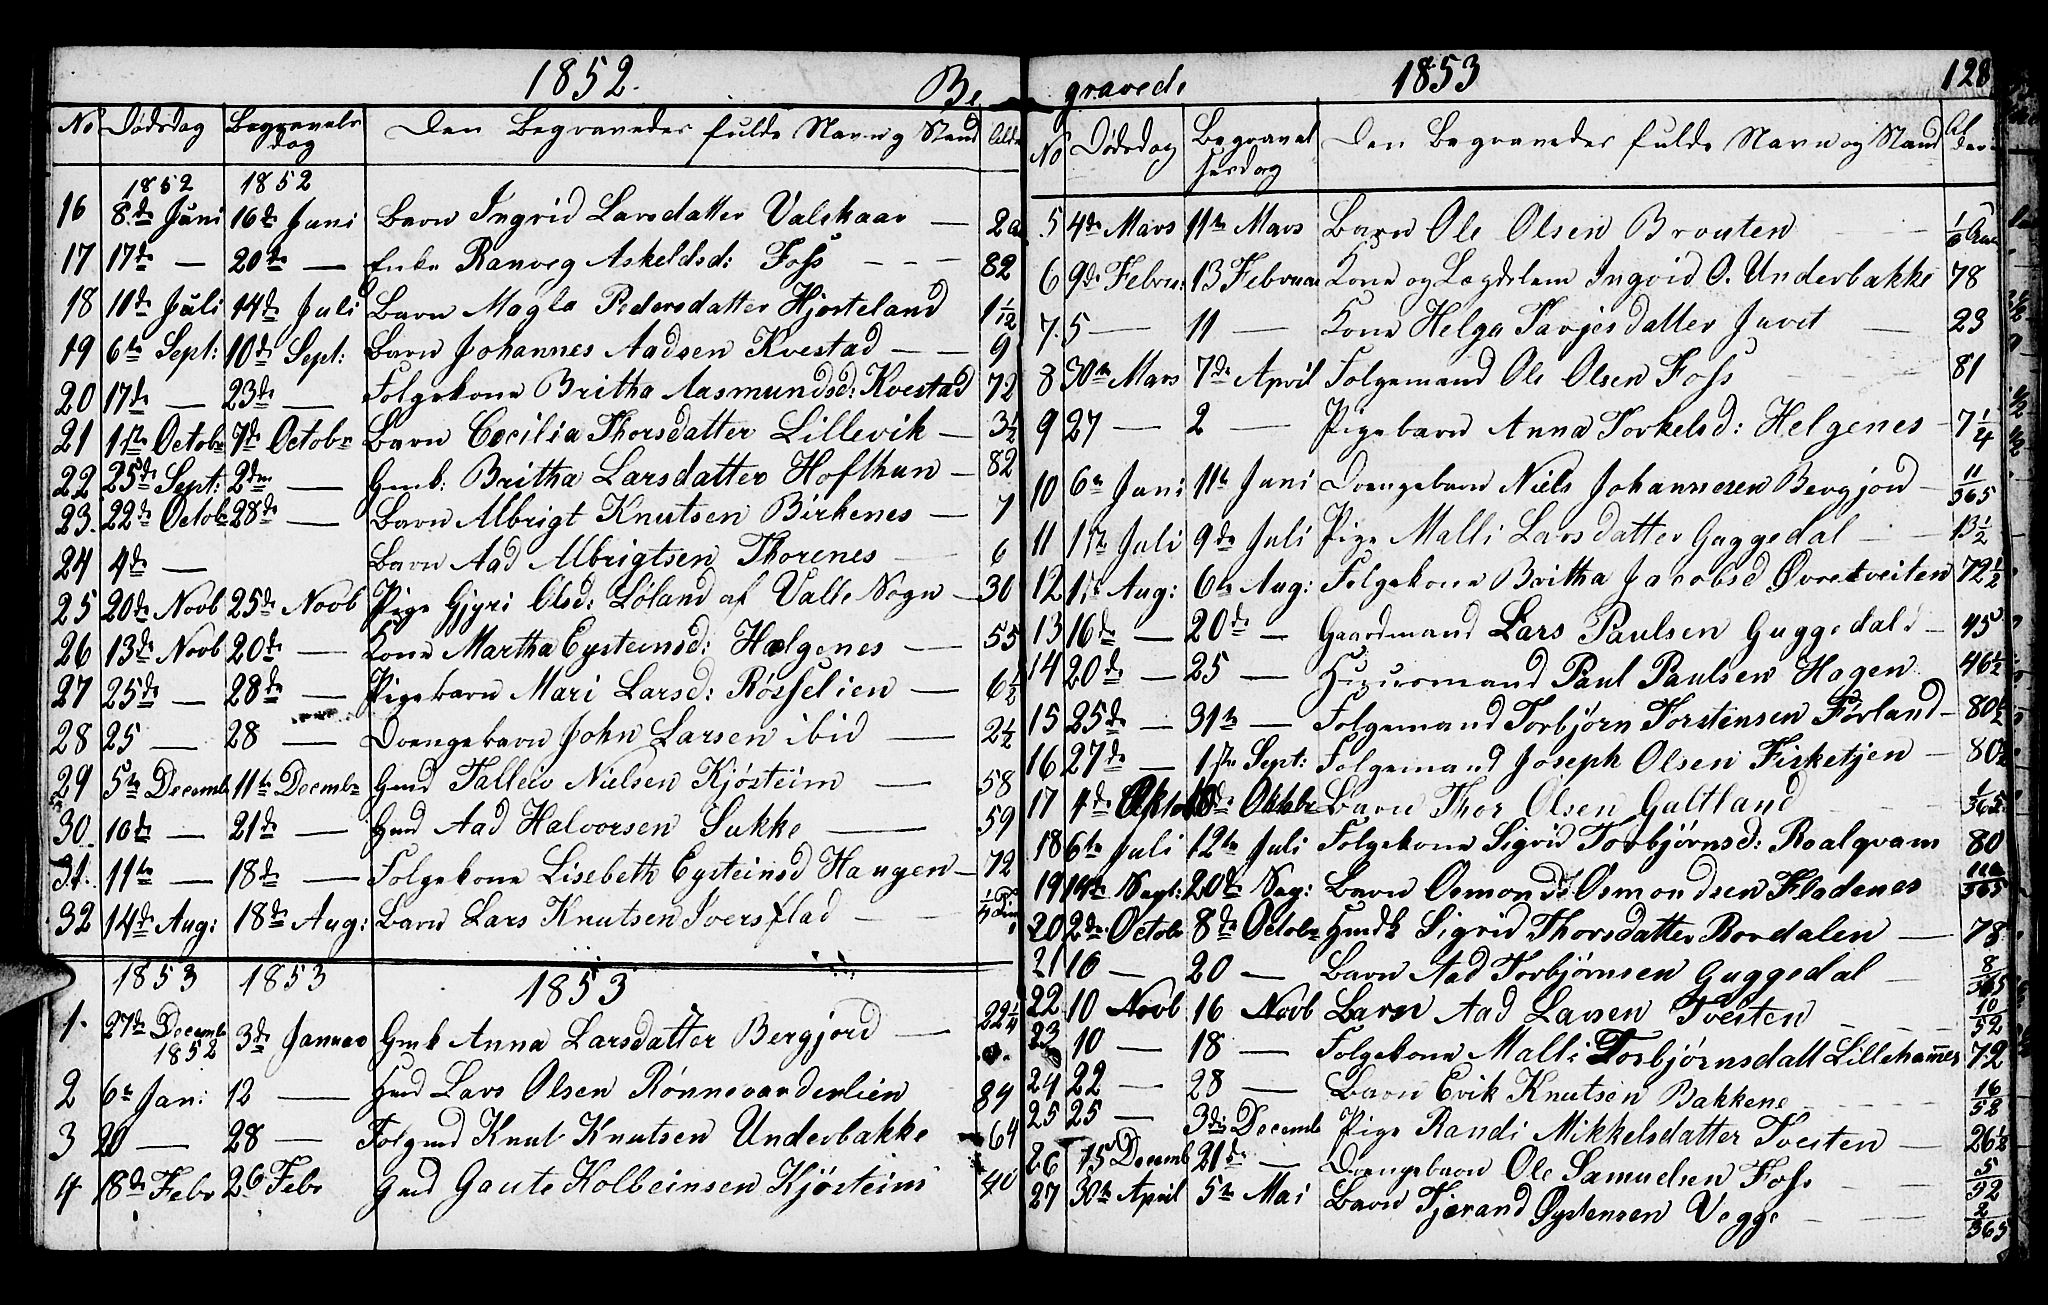 1852. Be
No Dødsdag Begravels dag Den Begravedes fulde Navn og Stand Alder
1852 1852
16 8de Juni 16de Juni Barn Ingrid Larsdatter Valskaar — 2
17 17de — 20de — Enke Ranveg Askeldsd: Foss - - - 82
18 11de Juli 14de Juli Barn Magla Pedersdatter Hjorteland 1 1/12
19 6te Sept: 10de Sept: Barn Johannes Aadsen Kvestad — — 9
20 17de — 23de — Folgekone Britha Aasmundsd: Kvestad 72
21 1ste Octobr 7de Octobr Barn Cecilia Thorsdatter Lillevik — 3 1/2
22 25de Sept: 2den — Gmk: Britha Larsdatter Hofthun — 82
23. 22de Octobr 28de — Barn Albrigt Knutsen Birkenes — 7
24 4de — Barn Aad Albrigtsen Thorenes — 6
25 20de Novb 25de Novb Pige Gjyri Olsd: Løland af Valle Sogn — 30
26 13de Novb 20de — Kone Martha Eysteinsd: Helgenes — 55
27 25de — 28de — Pigebarn Mari Larsd: Røsselien — 6 1/2
28 25 — 28 — Drengebarn John Larsen ibid — 2 1/2
29 5te Decemb 11te Decembr Gmd Tallev Nielsen Kjøsteim — 58
30. 10de — 21de — Hmd Aad Halvorsen Sukke — 59
31. 11te — 18de — Folgekone Lisebeth Eysteinsd Haugen — 72
32 14de Aug: 18de Aug: Barn Lars Knutsen Iversflad — — 1/4
1853 1853 1853
1. 27de Decemb 1852 3de Januar Gmk Anna Larsdatter Bergjord — 22 1/4
2 6te Jan: 12 — Hmd Lars Olsen Rønnevanderlien 89
3 20 — 28 — Folgmd Knut Knutsen Underbakke 64
4 18de Febr 26 Febr Gmd Gaute Kolbeinsen Kjøsteim 40
gravede 1853 128
No Dødsdag Begravel sesdag Den Begravedes fulde Navn og Stand Al der
5 4de Mars 11te Mars Barn Ole Olsen Brouten
6 9de Februa: 13 Februar Kone og Lægdslem Ingrid O. Underbakke 78
7. 5 — 11 — Kone Helga Tarjesdatter Juvet — 23
8 30te Mars 7de April Folgemand Ole Olsen Foss 81
9 27 — 2 — Pigebarn Anna Torkelsd: Helgenes - 7 1/4
10 6te Juni 11te Juni Drengebarn Niels Johannesen Bergjord - 11/365
11 1ste Juli 9de Juli Pige Malli Larsdatter Guggedal — 13 1/2
12 1ste Aug: 6te Aug: Folgekone Britha Jacobsd Øvretveiten 72 1/2
13 16de — 20de — Gaardmand Lars Paulsen Guggedal - 45
14 20de — 25 — Huusmand Paul Paulsen Hagen 46 1/2
15 25de — 31te — Folgemand Torbjørn Torstensen Førland - 80 1/2
16 27de — 1ste Sept: Folgemand Joseph Olsen Fisketjen — 80 1/2
17 4de Oktob Oktobr Barn Thor Olsen Galtland 1/365
18 6te Juli 12te Juli Folgekone Sigrid Torbjørnsd: Roalqvam 80
19 14de Sept: 20de Sep: Barn Osmond Osmondsen Fladenes 110/365
20 2de Octobr 8de Octobr Hmdk Sigrid Thorsdatter Bordalen — 78
21 16 — 20 — Barn Aad Torbjørnsen Guggedal - 8/365
22 10 Novb 16 Novb Barn Aad Larsen Tvesten 10/52
23 10 — 18 — Folgekone Malli Torbjørnsdatt Lillehamer 72
24 22 — 28 — Barn Erik Knutsen Bakkene 16/52
25 25 — 3die Decemb Pige Randi Mikkelsdatter Tvesten — 26 1/2
26 15 Decemb 21de — Drengebarn Ole Samuelsen Foss 5/52
27 30te April 5te Mai Barn Tjerand Øystensen Vegge 2/365